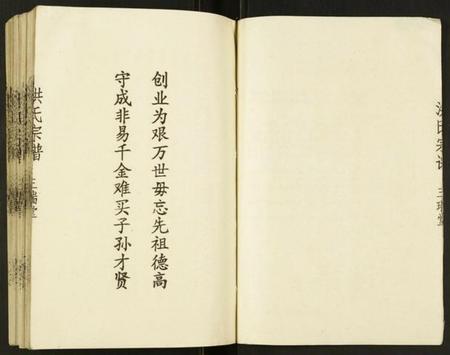 创业为艰万世毋忘先祖德高
守成非易千金难买子孙才贤
洪氏宗谱
三瑞堂
洪氏宗谱
三瑞堂